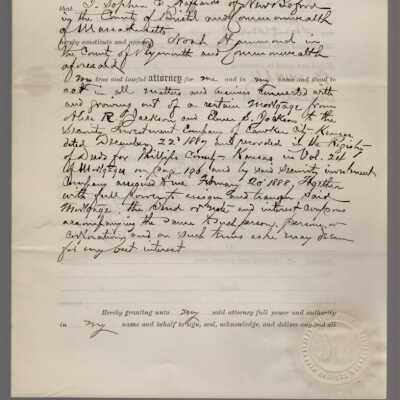 that I, Sophia D. of New Bedford
in the County of Bristol and Commonwealth
of Massachusetts
hereby constitute and appoint Noah Hammond in
the County of Plymouth and Commonwealth
aforesaid
my true and lawful attorney for me and in my name and stead to
act in all matters and business connected with
and growing out of a certain mortgage from
R Jackson and Elmer S. Jackson to the
Security Investment Company of Cawker City Kansas
dated December 22d and recorded in the Registry
of Deeds for Phillips County Kansas, in Vol. 24
of Mortgages on page 196 and by said Security Investment
Company assigned to me February 20 1888, together
with full power to assign and transfer said
Mortgage, the Bond or Note and interest coupons
accompanying the same to such person, persons, or
corporations and on such terms as he may deem
for my best interest
Hereby granting unto my said attorney full power and authority
in my name and behalf to sign, seal, acknowledge, and deliver any and all